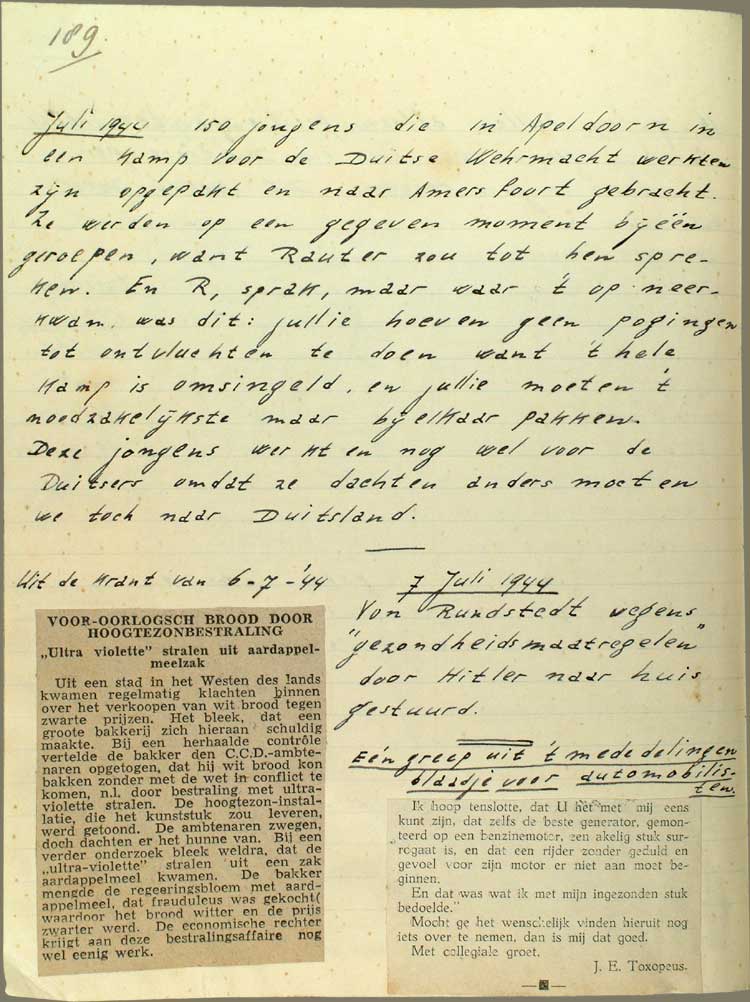 189.
Juli 1944 150 jongens die in Apeldoorn in
een kamp voor de Duitse Wehrmacht werkten
zijn opgepakt en naar Amersfoort gebracht.
Ze werden op een gegeven moment bijeen
geroepen, want Rauter zou tot hen spre-
ken. En R, sprak, maar waar 't op neer-
kwam, was dit: jullie hoeven geen pogingen
tot ontvluchten te doen want 't hele
kamp is omsingeld, en jullie moeten 't
noodzakelijkste maar bijelkaar pakken.
Deze jongens werkten nog wel voor de
Duitsers omdat ze dachten anders moeten
we toch naar Duitsland.
Uit de krant van 6-7-'44
VOOR-OORLOGSCH BROOD DOOR
HOOGTEZONBESTRALING
„Ultra violette” stralen uit aardappel-
meelzak
Uit een stad in het Westen des lands
kwamen regelmatig klachten binnen
over het verkoopen van wit brood tegen
zwarte prijzen. Het bleek, dat een
groote bakkerij zich hieraan schuldig
maakte. Bij een herhaalde contrôle
vertelde de bakker den C.C.D.-ambte-
naren opgetogen, dat hij wit brood kon
bakken zonder met de wet in conflict te
komen, n.l. door bestraling met ultra-
violette stralen. De hoogtezon-instal-
latie, die het kunststuk zou leveren,
werd getoond. De ambtenaren zwegen,
doch dachten er het hunne van. Bij een
verder onderzoek bleek weldra, dat de
„ultra-violette” stralen uit een zak
aardappelmeel kwamen. De bakker
mengde de regeeringsbloem met aard-
appelmeel, dat frauduleus was gekocht
waardoor het brood witter en de prijs
zwarter werd. De economische rechter
krijgt aan deze bestralingsaffaire nog
wel eenig werk.
7 Juli 1944
Von Rundstedt wegens
"gezondheidsmaatregelen"
door Hitler naar huis
gestuurd.
Eén greep uit 't mededelingen
blaadje voor automobilis-
ten.
Ik hoop tenslotte, dat U het met mij eens
kunt zijn, dat zelfs de beste generator, gemon-
teerd op een benzinemotor, een akelig stuk sur-
rogaat is, en dat een rijder zonder geduld en
gevoel voor zijn motor er niet aan moet be-
ginnen.
En dat was wat ik met mijn ingezonden stuk
bedoelde.”
Mocht ge het wenschelijk vinden hieruit nog
iets over te nemen, dan is mij dat goed.
Met collegiale groet.
J. E. Toxopeus.